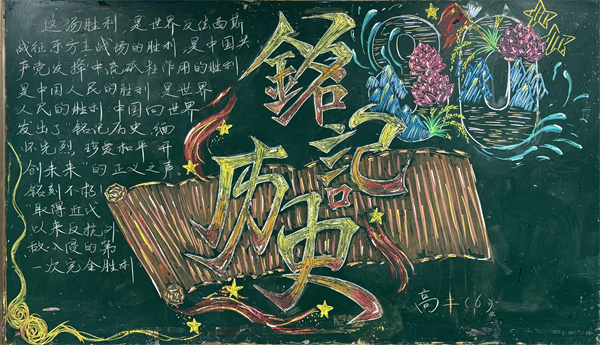 这场胜利,是世界反法西斯
战征东方主战场的胜利,是中国共
产党发挥中流砥柱作用的胜利
是中国人民的胜利,是世界
人民的胜利,中国向世界
发出了“铭记历史、缅
怀先烈、珍爱和平、开
创未来”的正义之声
铭刻不朽
“取得近代
以来反抗外
敌入侵的第
一次完全胜利
銘记
历史
80
高十(6)